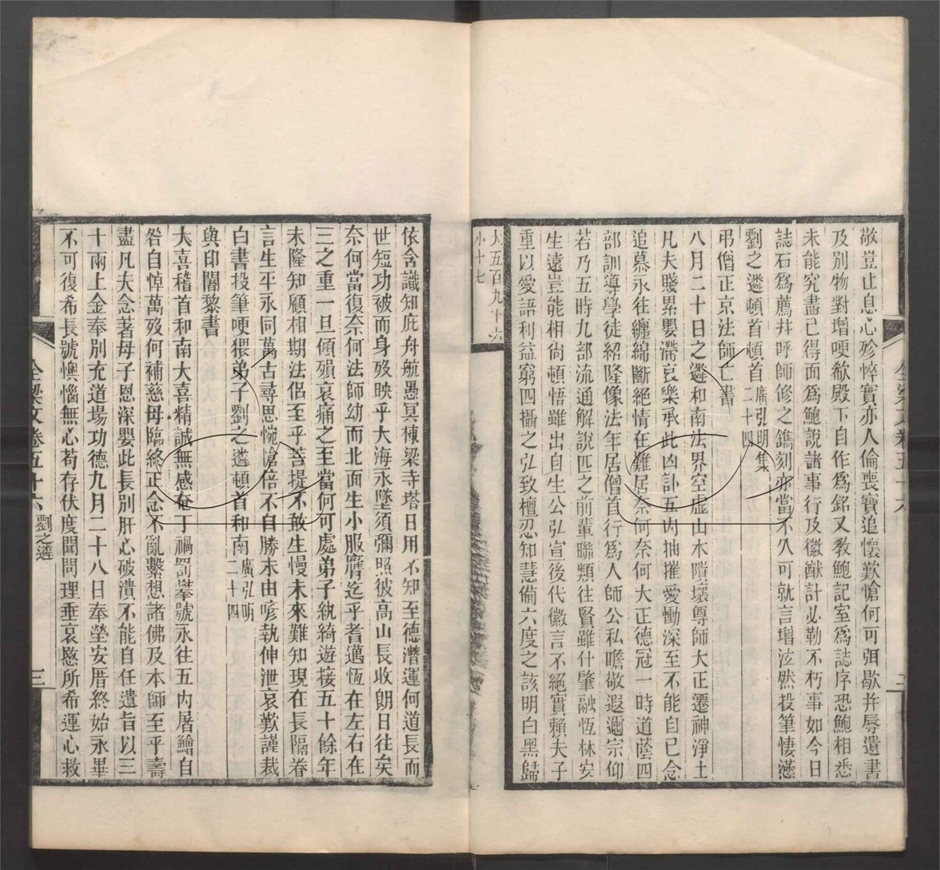 敬豈止息心殄悴實亦人倫喪寶追懷歎愴何可弭歇幷辱遺書
及別物對增哽欷殿下自作爲銘又敎鮑記室爲誌序恐鮑相悉
未能究盡已得面爲鮑說諸事行及徽猷計必勒不朽事如今日
誌石爲薦幷呼師修之鐫刻亦當不久可就言增泫然投筆悽懣
劉之遴頓首頓首廣弘明集
二十四
弔僧正京法師亡書
八月二十日之遴和南法界空虛山木隤壞尊師大正遷神淨土
凡夫賤累嬰滯哀樂承此凶訃五內抽摧哀慟深至不能自已念
追慕永往纏綿斷絕情在難居奈何奈何大正德冠一時道蔭四
部訓導學徒紹隆像法年居僧首行爲人師公私瞻敬遐邇宗仰
若乃五時九部流通解說匹之前輩聯類往賢雖什肇融恆林安
生遠豈能相尙頓悟雖出自生公弘宣後代微言不絕實賴夫子
重以愛語利益窮四攝之弘致檀忍知慧備六度之該明白黑歸
大五百九十六
小十七
依含識知庇舟航愚冥棟梁寺塔日用不知至德潛運何道長而
世短功被而身歿映乎大海永墜須彌照彼高山長收朗日往矣
奈何當復奈何法師幼而北面生小服膺迄乎耆邁恆在左右在
三之重一旦傾殞哀痛之至當何可處弟子紈綺遊接五十餘年
未隆知顧相期法侶至乎菩提不敢生慢未來難知現在長隔眷
言生平永同萬古尋思惋愴倍不自勝未由唁執伸泄哀歎謹裁
白書投筆哽猥弟子劉之遴頓首和南廣弘明
二十四
與印闍黎書
大喜稽首和南大喜精誠無感奄丁禍罰攀號永往五內屠鱠自
咎自悼萬歿何補慈母臨終正念不亂繫想諸佛及本師至乎壽
盡凡夫念著母子恩深嬰此長別肝心破潰不能自任遺旨以三
十兩上金奉別充道場功德九月二十八日奉塋安厝終始永畢
不可復希長號懊惱無心苟存伏度聞問理垂哀愍所希運心救
全梁文卷五十六
劉之遴
三